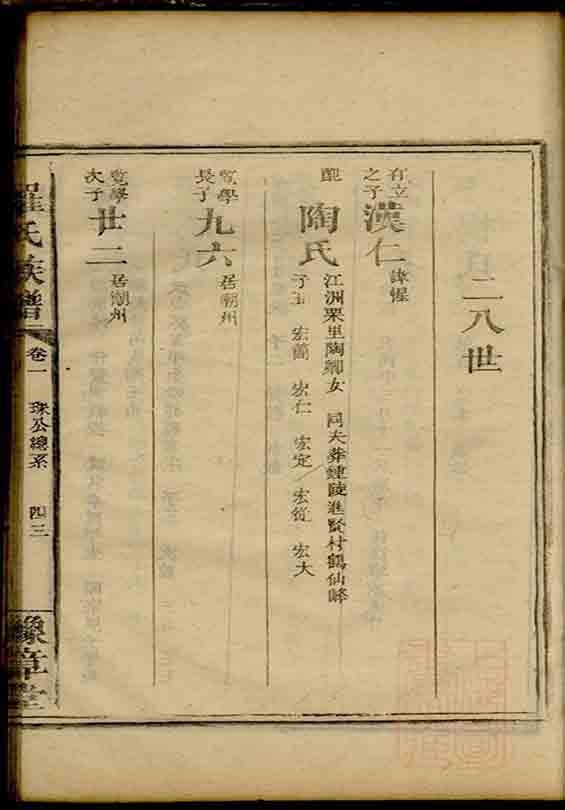 二八世
有立之子 漢仁 諱惺
配 陶氏 江洲栗里陶卿女 同夫葬鍾陵進賢村鶴仙峰
子五 宏蘭 宏仁 宏定 宏從 宏大
寬學長子 九六 居潮州
寬學次子 廿二 居潮州
羅氏族譜 卷一 珠公總系 四三 豫章堂